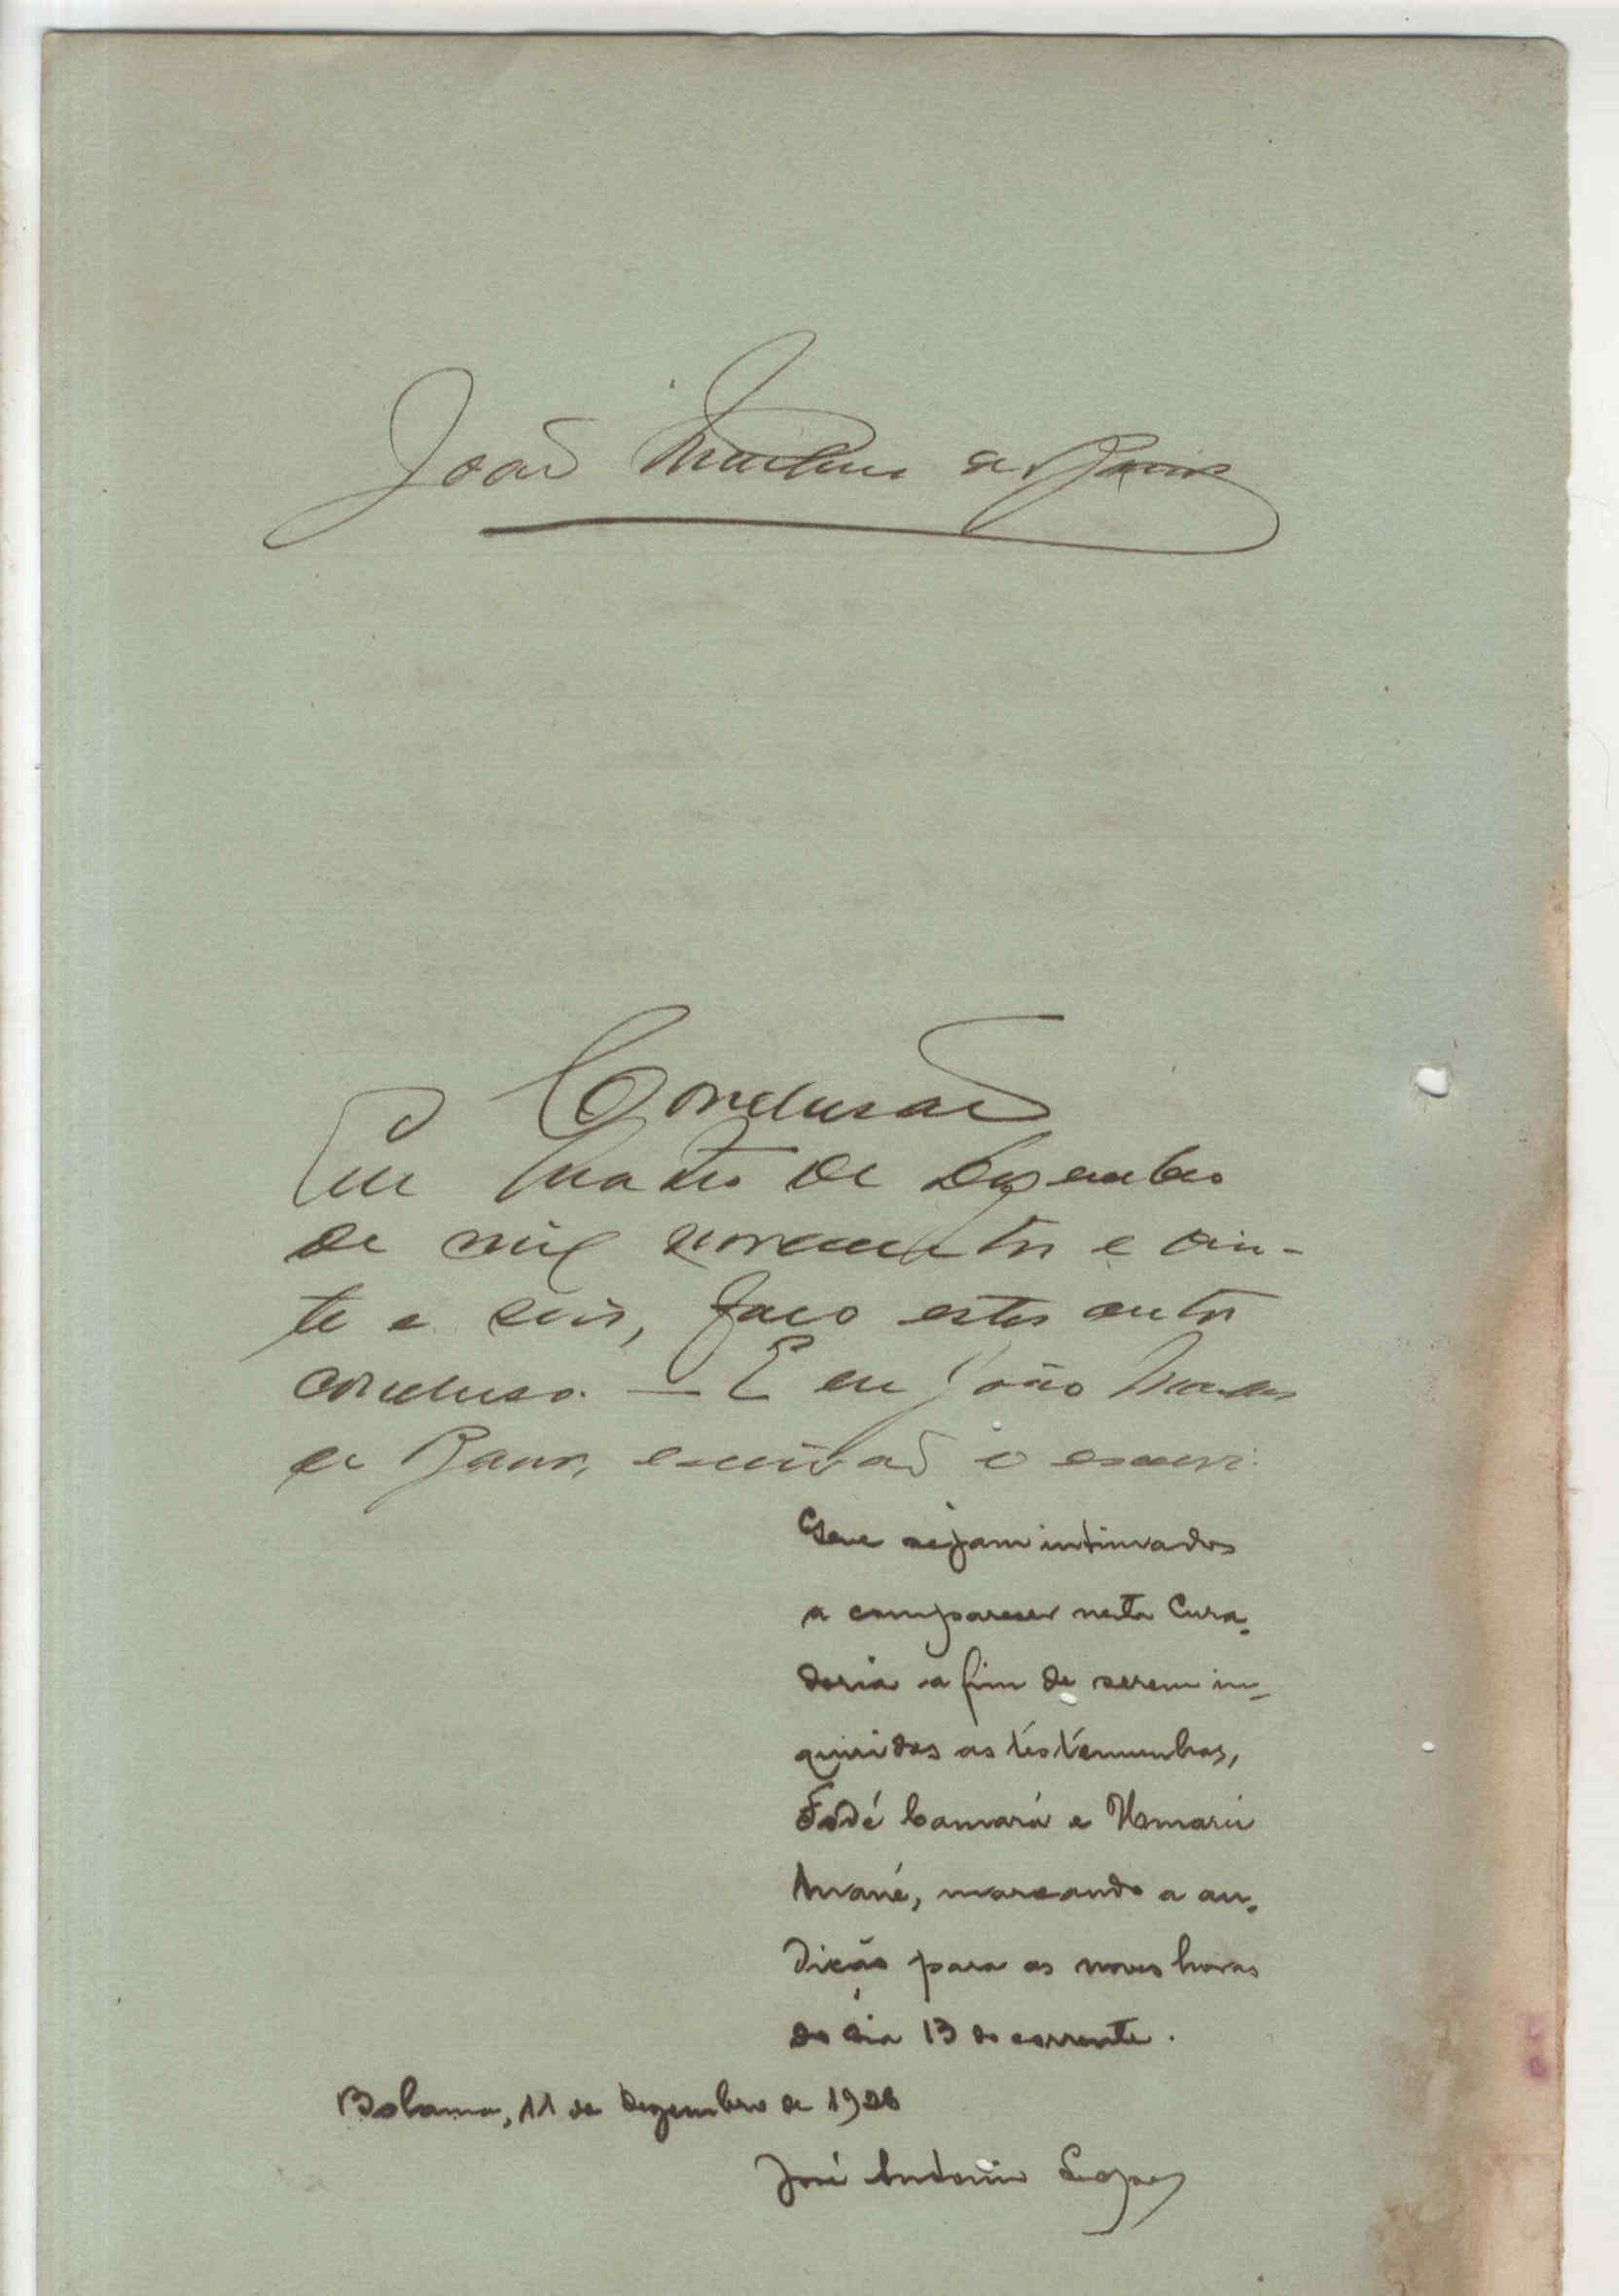 João Martins de Barros
Conclusão
Em quatro de Dezembro
de mil novecentos e vin-
te e seis, faço estes autos
conclusos. — E eu João Martins
de Barros, escrivão o escrevi.
Que sejam intimados
a comparecer nesta Cura-
doria a fim de serem in-
quiridas as testemunhas,
Fodé Camará e Umarú
Mané, marcando a au-
dição para as nove horas
do dia 13 do corrente.
Bolama, 11 de Dezembro de 1926
José Antonio Lopes